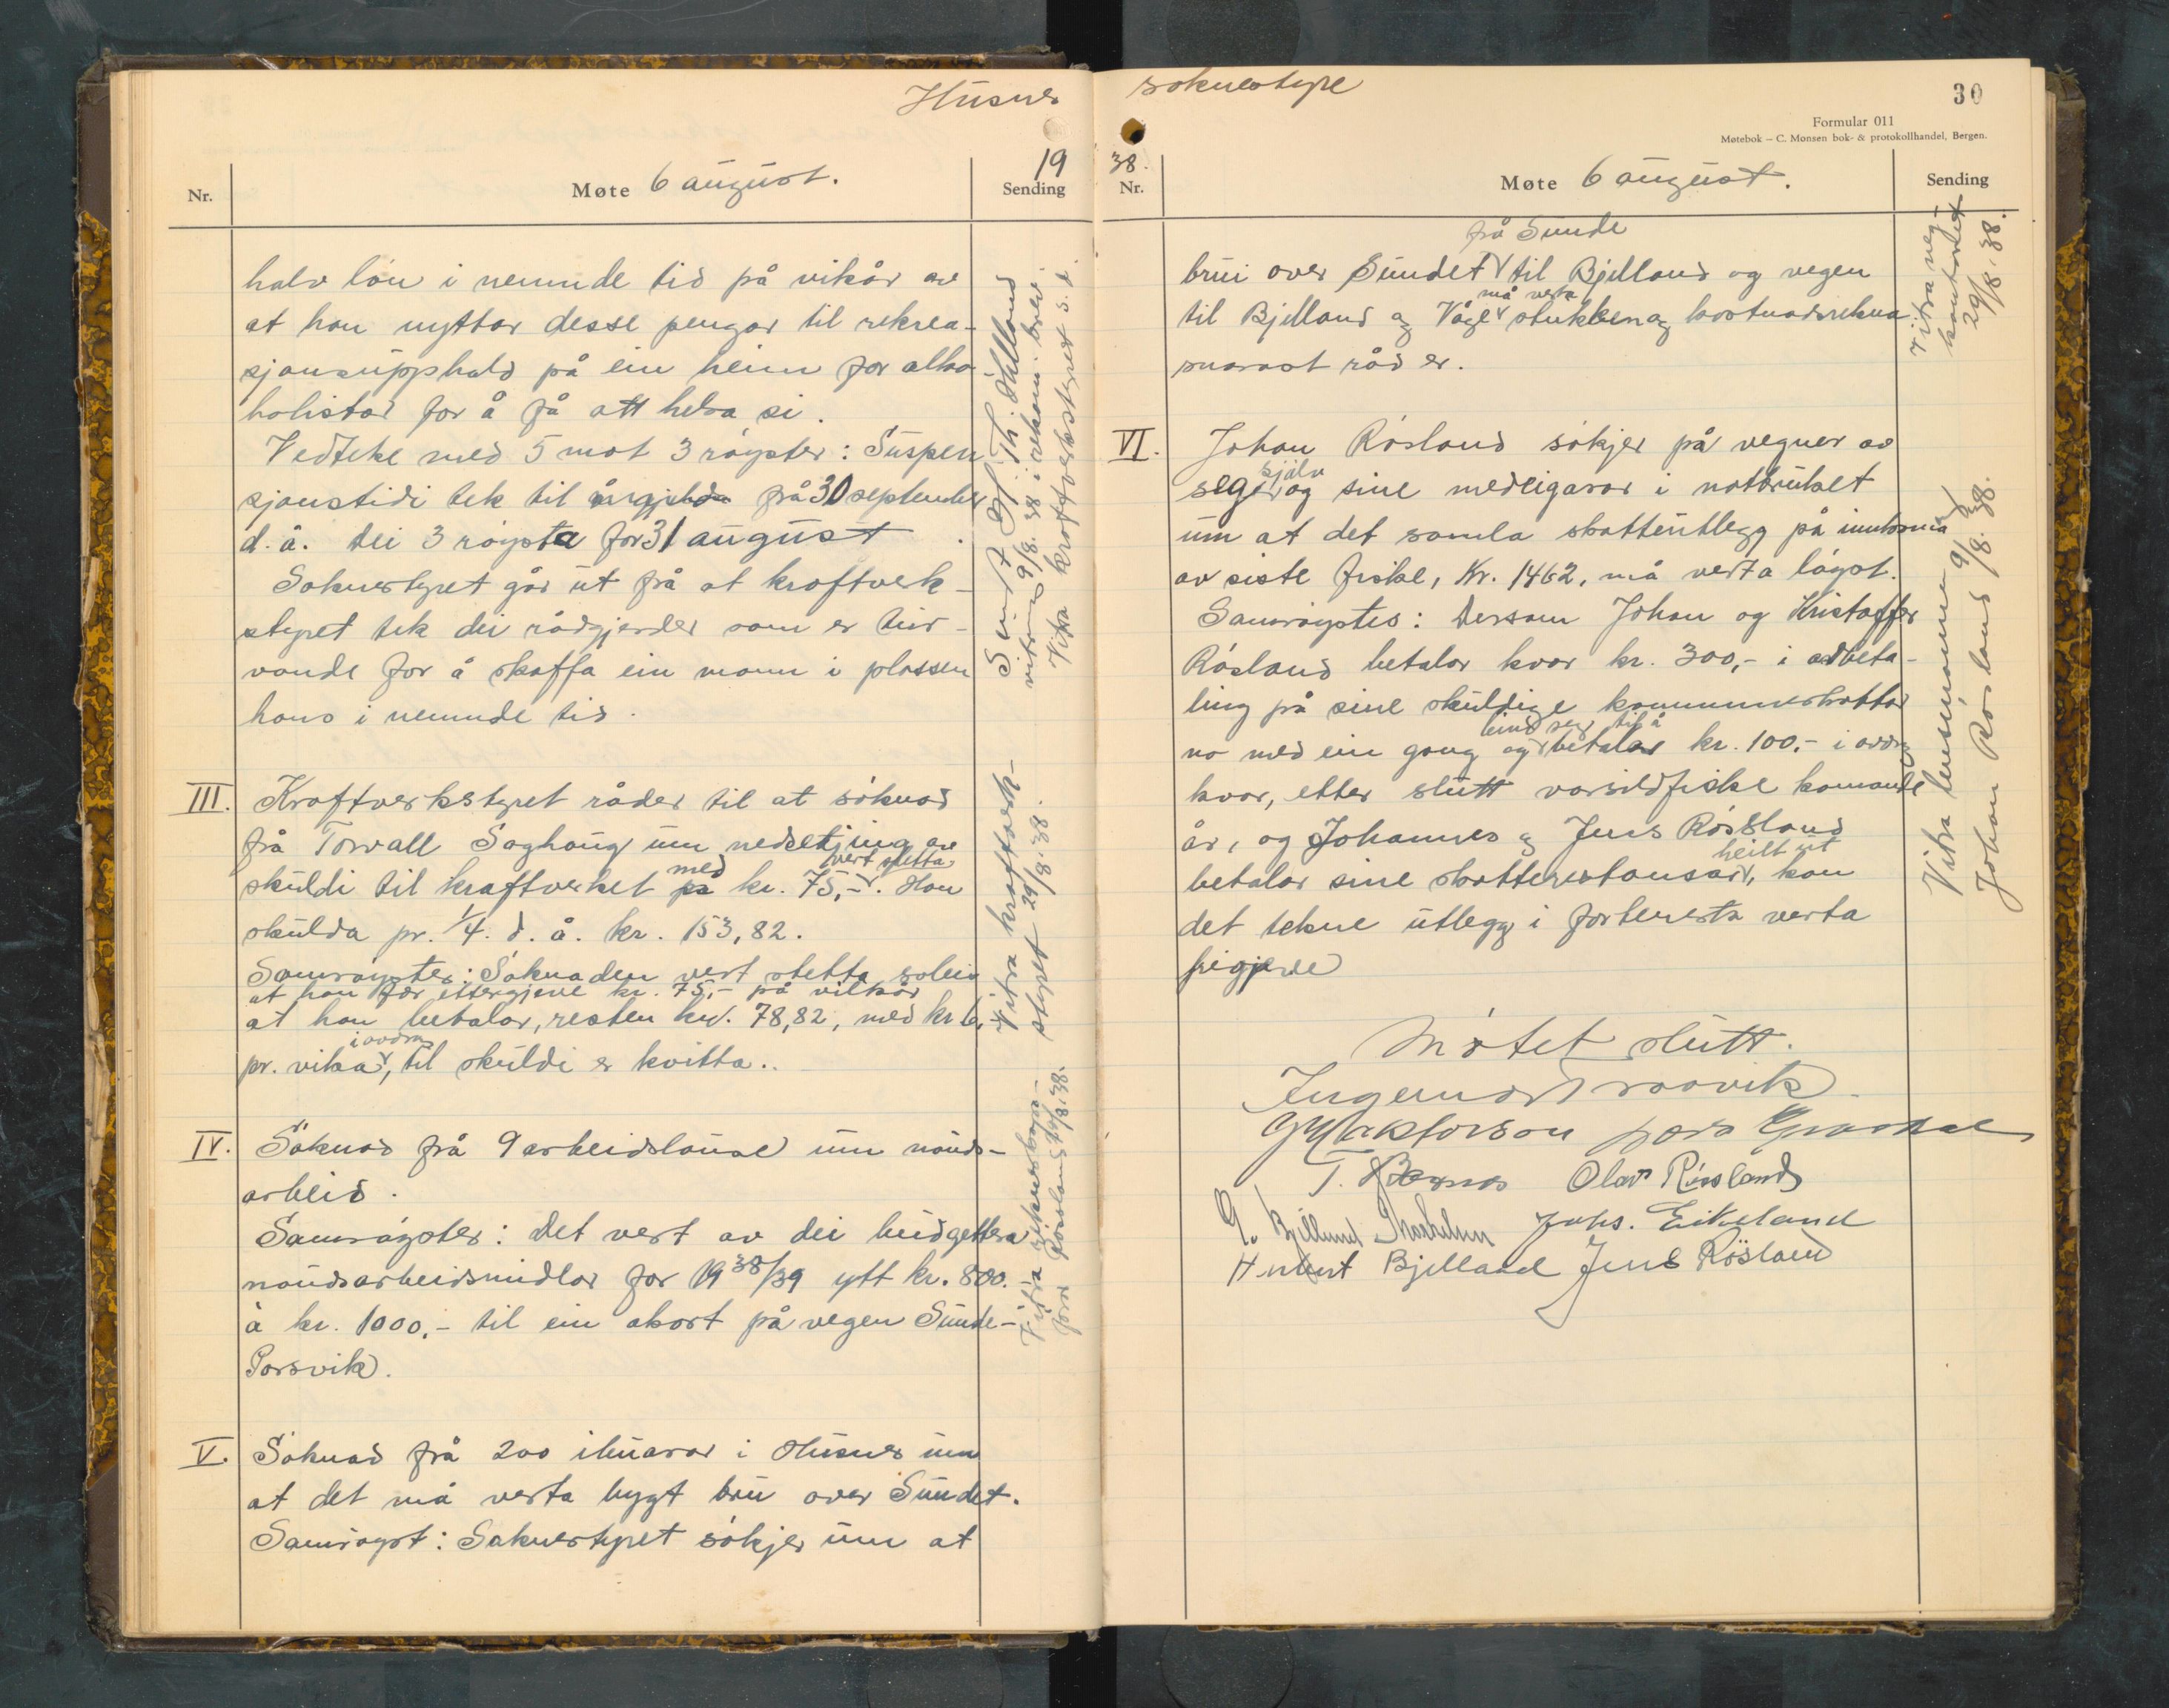 Husnes soknestyre
30
Formular 011
Møtebok – C. Monsen bok- & protokollhandel, Bergen.
Nr.
Møte 6 august.
1938.
Sending
halv løn i nemnde tid på vilkår av
at han nyttar desse pengar til rekrea-
sjonsupphald på ein heim for alko-
holistar for å få att helsa si.
Vedteke med 5 mot 3 røyster: Suspen
sjonstidi tek til å gjelda frå 30 september
d.å. Dei 3 røysta for 31 august.
Soknestyret går ut frå at kraftverk-
styret tek dei rådgjerder som er tur-
vande for å skaffa ein mann i plassen
hans i nemnde tid.
Th. Helland
9/8. 38 i rekom. brev.
Vitra kraftverkstyret s.d.
III. Kraftverkstyret råder til at søknad
frå Torvall Saghaug um nedsetjing av
skuldi til kraftverket med kr. 75,- vert stetta. Han
skulda pr. 1/4. d.å. kr. 153,82.
Samrøystes: Søknaden vert stetta soleis
at han fær ettergjeve kr. 75,- på vilkår
at han betalar, resten kr. 78,82, med kr 6,
pr. vika i avdrag, til skuldi er kvitta..
Vitra kraftverk-
styret 29/8. 38.
IV. Søknad frå 9 arbeidslause um nauds-
arbeid.
Samrøystes: Det vert av dei budgettera
naudsarbeidsmidlar for 1938/39 ytt kr. 800.-
à kr. 1000,- til ein akort på vegen Sunde-
Porsvik.
V. Søknad frå 200 ibuarar i Husnes um
at det må verta bygt bru over Sundet.
Samrøyst: Soknestyret søkjer um at
Nr.
Møte 6 august.
Sending
bru over Sundet frå Sunde til Bjelland og vegen
til Bjelland og Våge må verta stukken og kostnadsrekna
snarast råd er.
Vitra veg-
kontoret
29/8. 38.
VI. Johan Røsland søkjer på vegner av
seg sjølv og sine medeigarar i notbruket
um at det samla skatteutlegg på innkoma
av siste fiske, Kr. 1462, må verta løyst.
Samrøystes: Dersom Johan og Kristoffer
Røsland betalar kvar kr. 300,- i avbeta-
ling på sine skuldige kommuneskattar
no med ein gong og bind seg til å betala kr. 100.- i avdrag
kvar, etter slutt vorsildfiske komande
år, og Johannes og Jens Røsland
betalar sine skatterestansar heilt ut, kan
det tekne utlegg i fortenesta verta
frigjeve
Vitra lensmannen 9/8
Johan Røsland 9/8. 38.
Møtet slutt.
Olav Røsland
G. Bjelland
Johs. Eikeland
Bjelland Jens Røsland